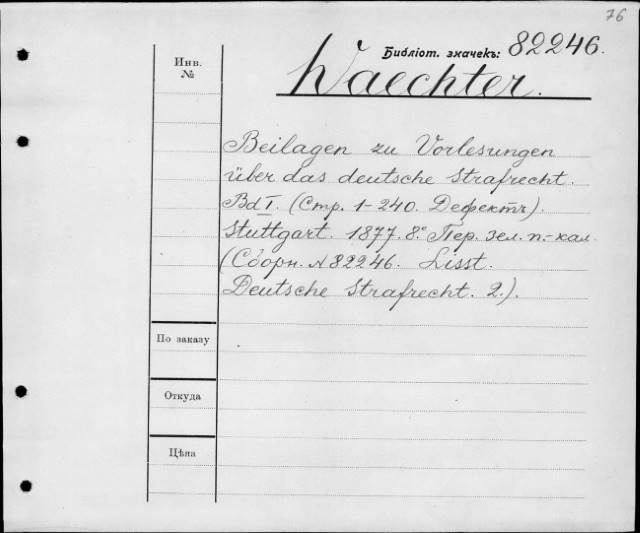 76
Библіот. значекъ: 82246.
Инв.
№
Waechter.
Beilagen zu Vorlesungen
über das deutsche Strafrecht.
Bd I. (Стр. 1-240. Дефектъ).
Stuttgart. 1877. 8.° Пер. зел. п.-кал.
(Сборн. № 82246. Lisst.
Deutsche Strafrecht. 2.).
По заказу
Откуда
Цѣна